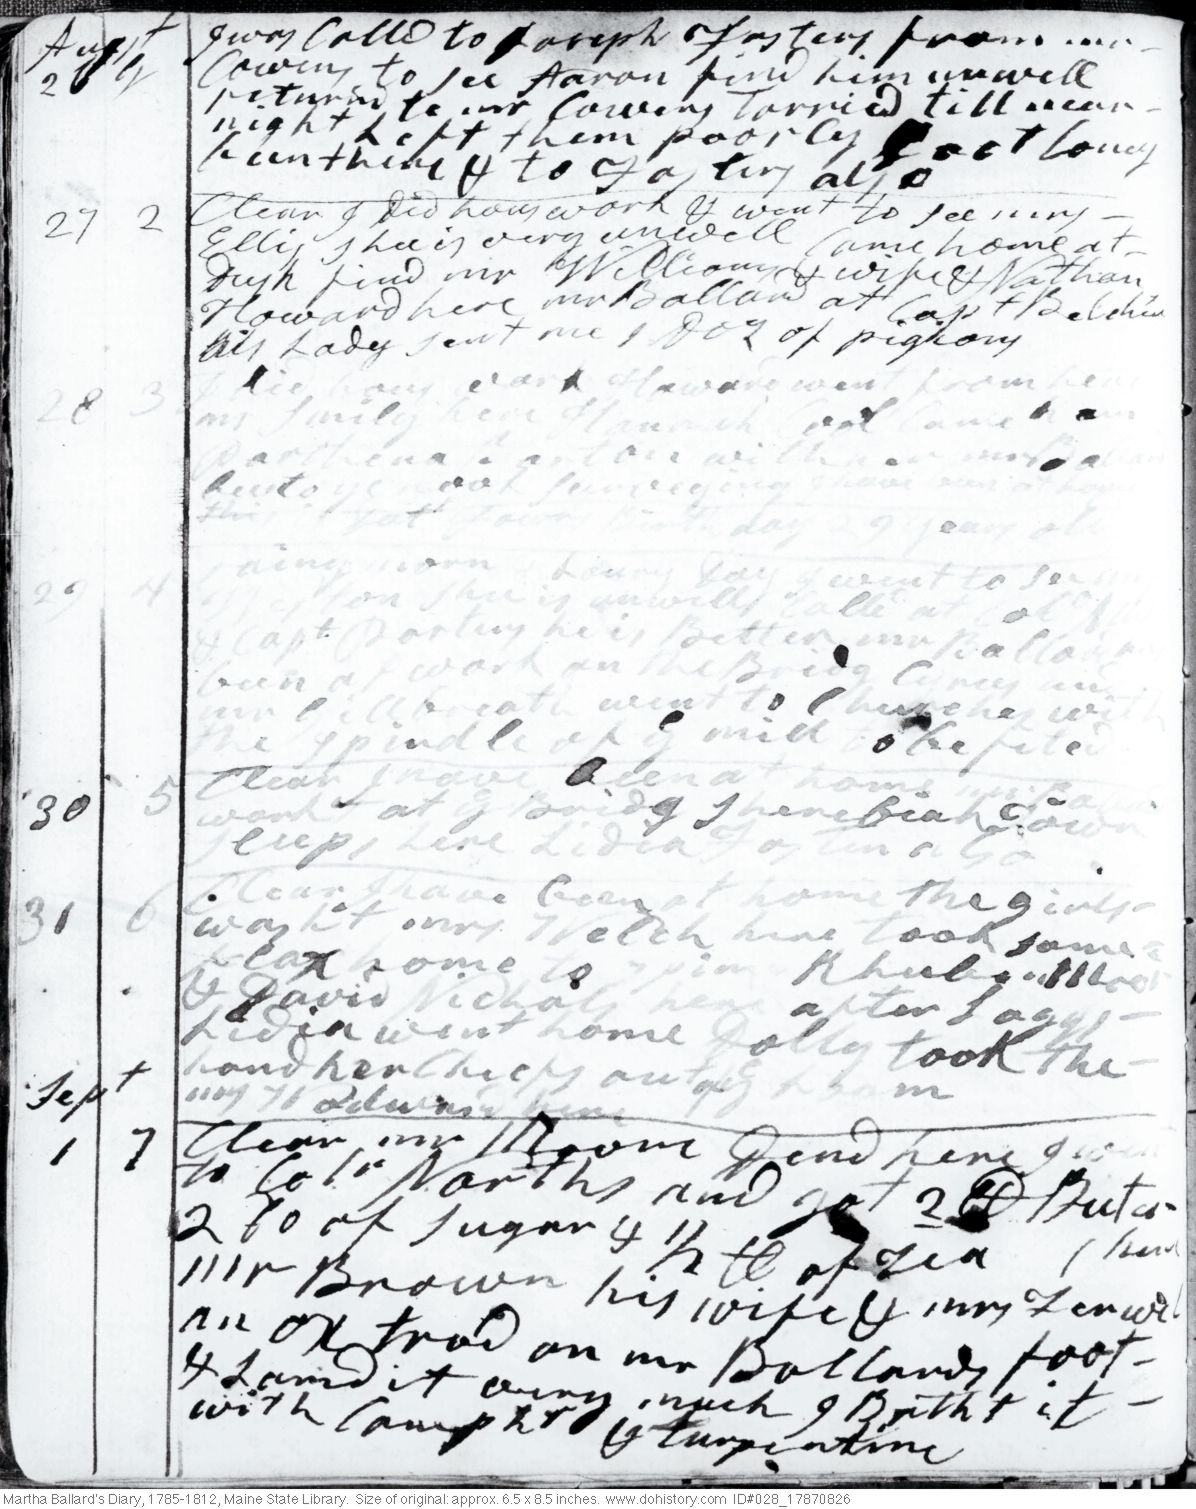 August I was Calld to Joseph Fosters from mr
26 1 Cowens to see Aaron find him unwell
returnd to mr Cowens Tarried till near
night Left them poorly Capt Coney
been there & to Fosters also
27 2 Clear I did houswork & went to see mrs
Ellis shee is very unwell Came home at
Dusk find mr Williams & wife & Nathan
Howard here mr Ballard at Capt Belchir
his Lady sent me 1 Doz of pigions
28 3 I did hous work Howard went from here
mr Smily here Hannah Cool Came
Parthena Barton with her mr Ballard
been to ye nook surveying I have been at home
this is Jonas birth day 29 years old
29 4 rainy morn I went to see mrs
Weston shee is unwell Calld at Coln
& Capt Porters he is Better mr Ballard
been at work on the Bridg Cyrus and
mr Gillbreath went to with
the Spindle of ye mill to be
30 5 Clear I have been at home mr Ballard
workt at ye Bridg Jeremiah Town
sleeps here Lidia Foster also
31 6 Clear I have been at home the girls
washt mrs Welch here took some
Flax home to spin Moor
& David Nichols here after Loggs
Lidia went home Dolly took the
hand her Cheefs out of ye room
Sept
1 7 Clear mr Moore Dend here I went
to Coln Norths and got 2 lb Buter
2 Do of sugar & 1/2 lb of Tea
mr Brown his wife & mrs
an ox trod on mr Ballards foot
& Lamd it very much I Batht it
with Camphr & turpintine
Martha Ballard's Diary, 1785-1812, Maine State Library. Size of original: approx. 6.5 x 8.5 inches. www.dohistory.com ID#028_17870826